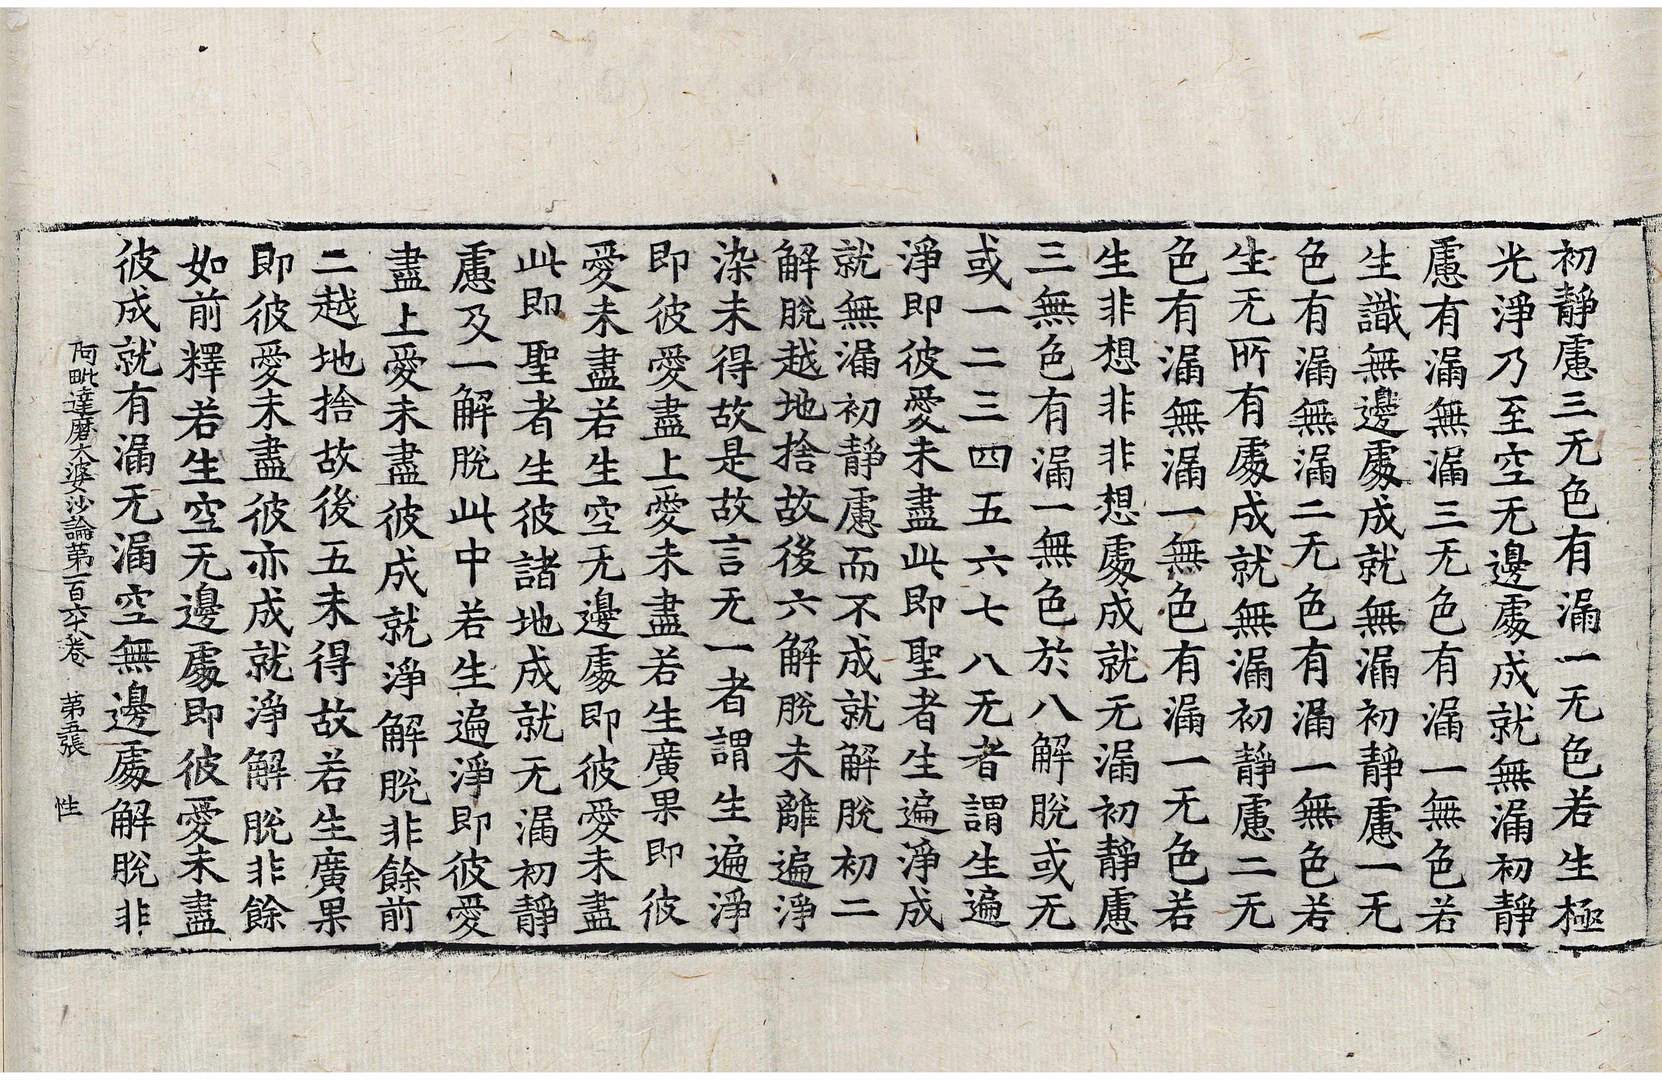 初靜慮三无色有漏一无色若生極
光淨乃至空无邊處成就無漏初靜
慮有漏無漏三无色有漏一無色若
生識無邊處成就無漏初靜慮一无
色有漏無漏二无色有漏一無色若
生无所有處成就無漏初靜慮二无
色有漏無漏一無色有漏一无色若
生非想非非想處成就无漏初靜慮
三無色有漏一無色於八解脫或无
或一二三四五六七八无者謂生遍
淨即彼愛未盡此即聖者生遍淨成
就無漏初靜慮而不成就解脫初二
解脫越地捨故後六解脫未離遍淨
染未得故是故言无一者謂生遍淨
即彼愛盡上愛未盡若生廣果即彼
愛未盡若生空无邊處即彼愛未盡
此即聖者生彼諸地成就无漏初靜
慮及一解脫此中若生遍淨即彼愛
盡上愛未盡彼成就淨解脫非餘前
二越地捨故後五未得故若生廣果
即彼愛未盡彼亦成就淨解脫非餘
如前釋若生空无邊處即彼愛未盡
彼成就有漏无漏空無邊處解脫非
阿毗達磨大婆沙論第一百六十八卷 第五張 性